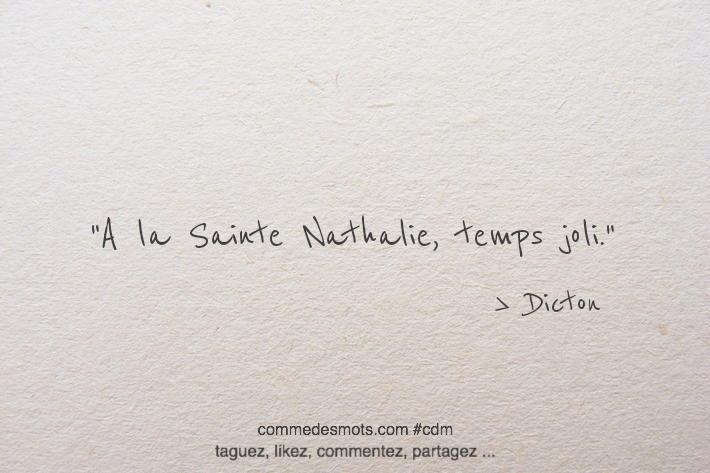 "A la Sainte Nathalie, temps joli."
> Dicton
commedesmots.com #cdm
taguez, likez, commentez, partagez ...